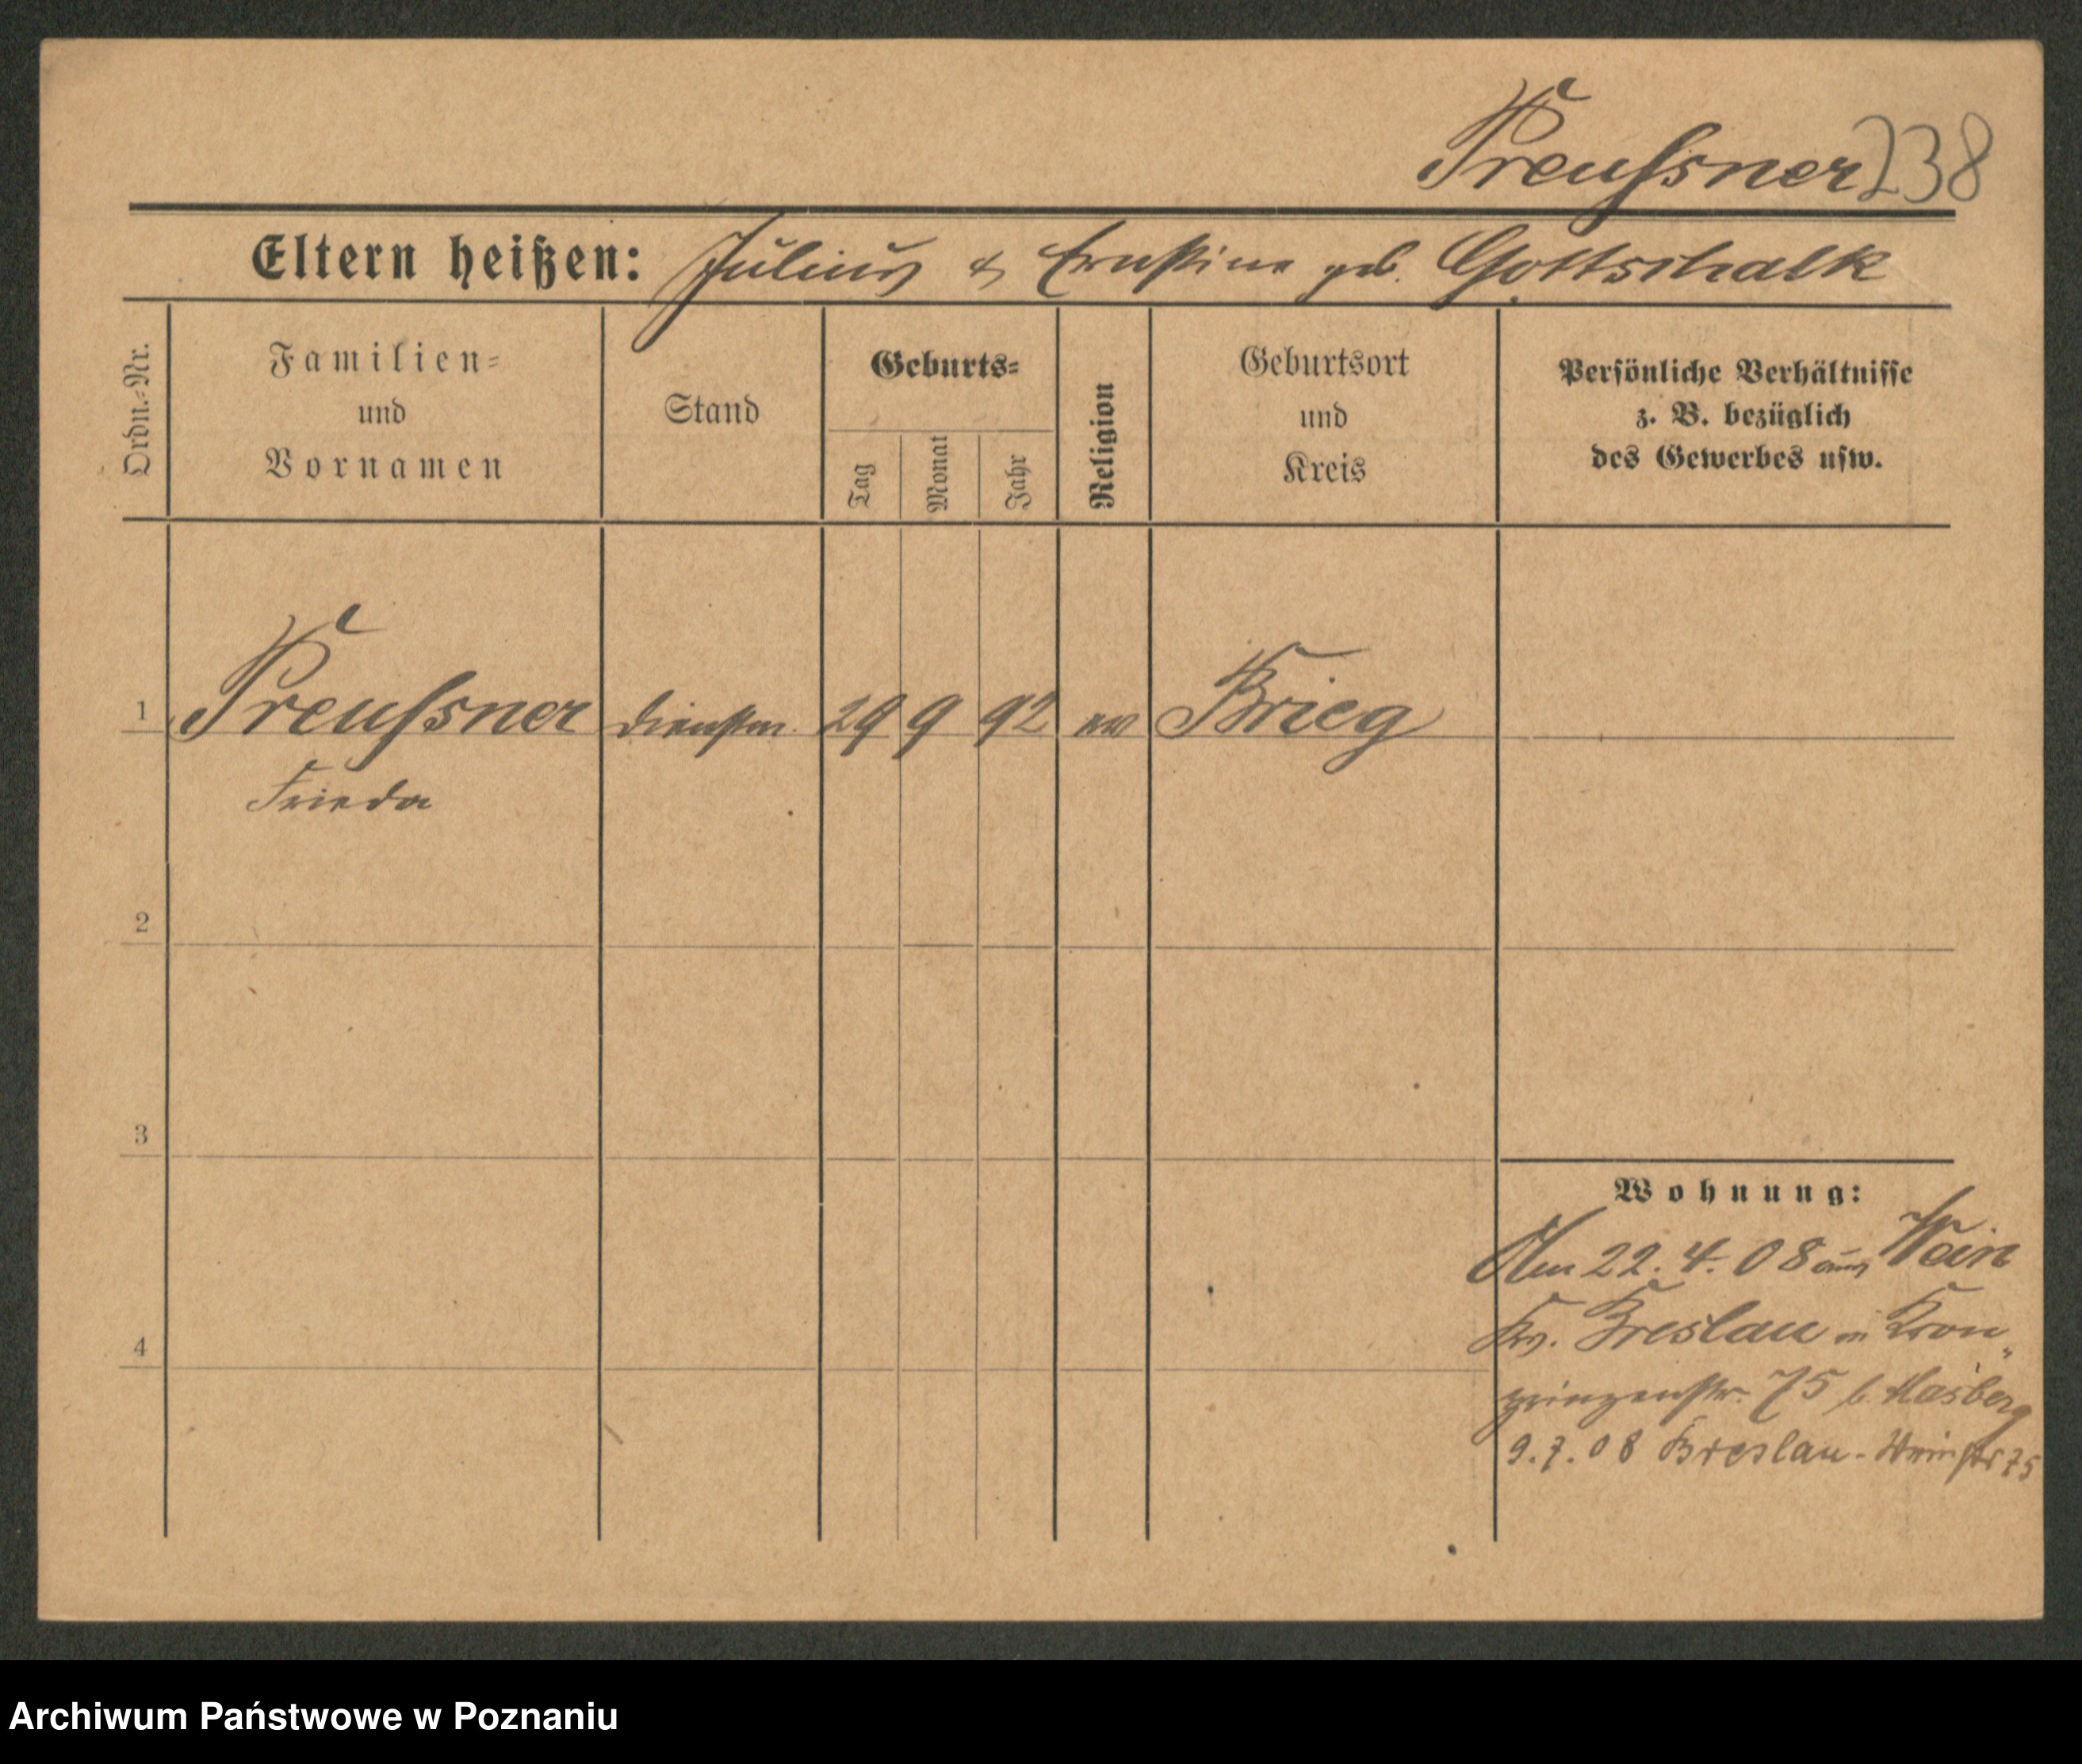 Preußner 238
Eltern heißen: Julius & Ernstine geb. Gottschalk
Ordn.-Nr.
Familien-
und
Vornamen
Stand
Geburts-
Tag
Monat
Jahr
Religion
Geburtsort
und
Kreis
Persönliche Verhältnisse
z. B. bezüglich
des Gewerbes usw.
1 Preußner Dienstm. 29 9 92 ev Brieg
Frieda
2
3
Wohnung:
Am 22.4.08 aus
4
Kr. Breslau in Kron„
prinzenstr. 75 b. Masberg
9.7.08 Breslau - Weinstr 75
Archiwum Państwowe w Poznaniu